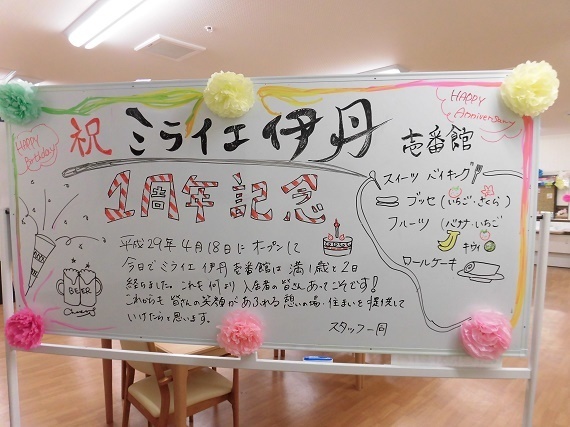 祝 ミライエ 伊丹 壱番館
HAPPY
Birthday
HAPPY
Anniversary
1周年記念
平成29年4月18日にオープンして
今日でミライエ伊丹壱番館は満1歳と2日
経ちました。これも何より入居者の皆さんあってこそです!
これからも皆さんの笑顔があふれる憩いの場・住まいを提供して
いけたらと思います。
スタッフ一同
BEER
スイーツ バイキング
ブッセ(いちご・さくら)
フルーツ(バナナ・いちご
キウイ
ロールケーキ